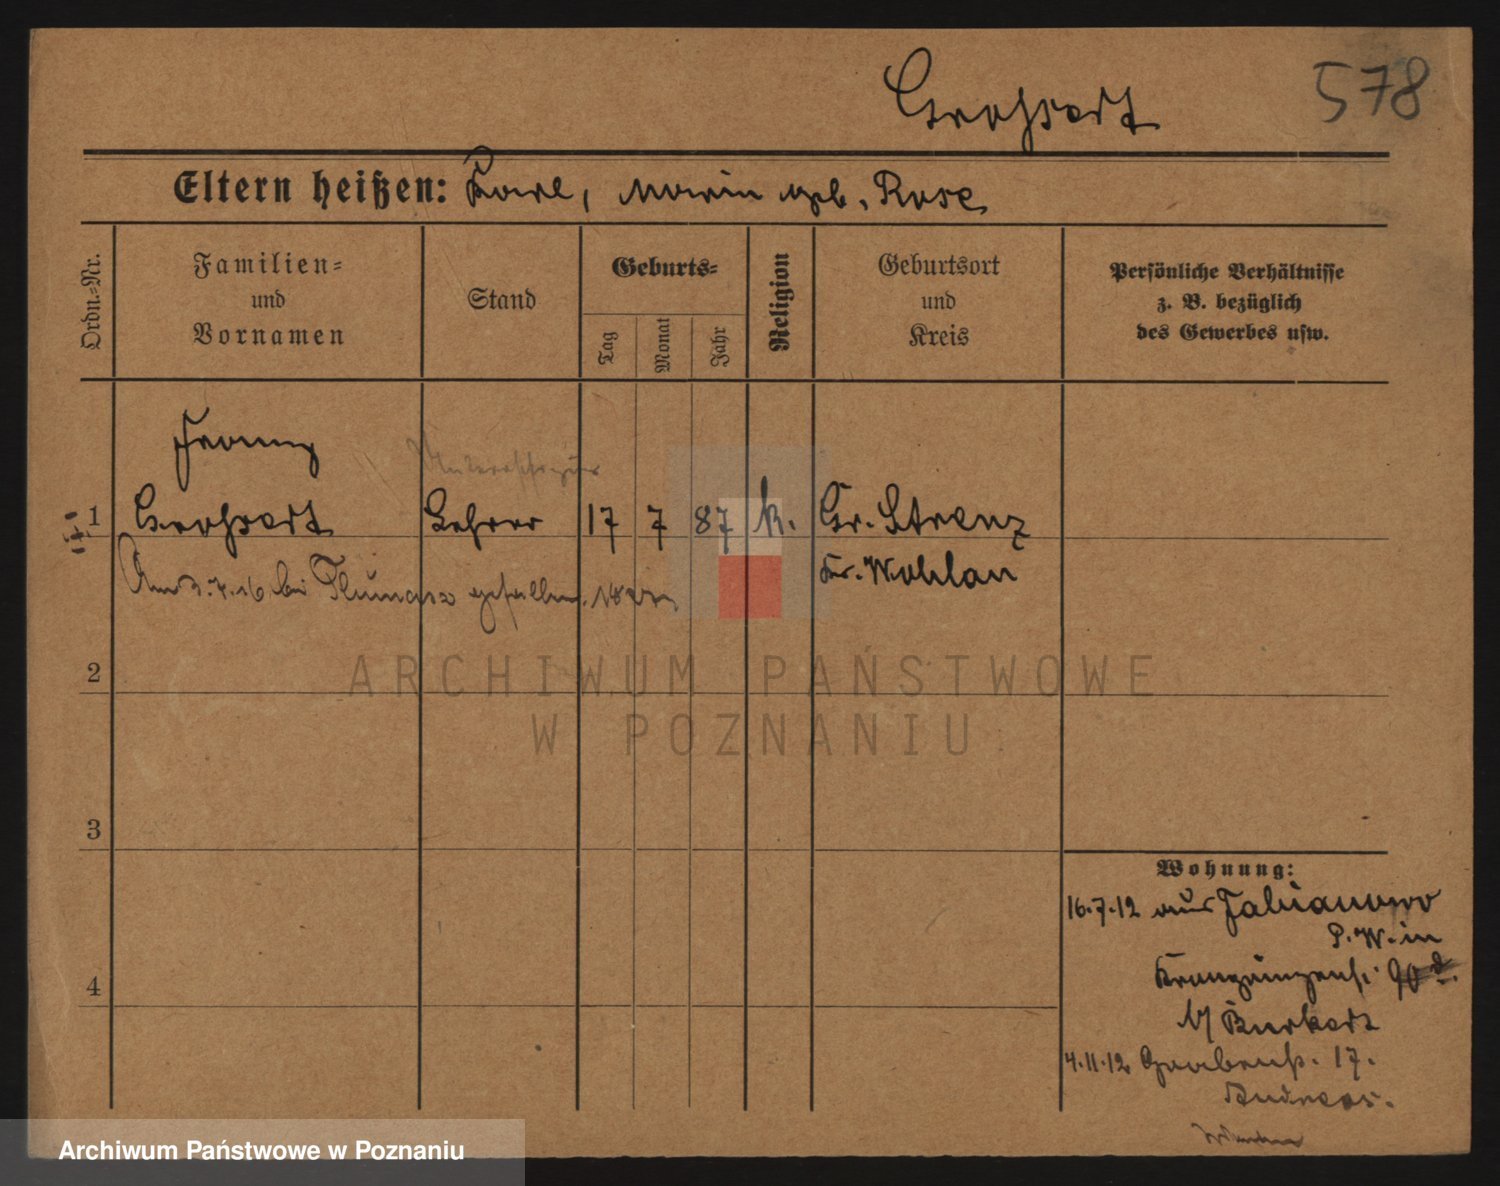 578
Eltern heißen: Karl, Maria geb. Rose
Ordn.=Nr.
Familien=
und
Vornamen
Stand
Geburts=
Tag
Monat
Jahr
Religion
Geburtsort
und
Kreis
Persönliche Verhältnisse
z. B. bezüglich
des Gewerbes usw.
Franz
1 Lehrer 17 7 87 k. Gr. Strenz
Kr. Wohlau
Am 3.7.16 bei gefallen.
2
3
4
Wohnung:
16.7.12 aus Fabianowo
P. W. in
Kronprinzenstr. 90
b/ Burkert
4.11.12 Grabenstr. 17.
Andreas.
ARCHIWUM PAŃSTWOWE
W POZNANIU
Archiwum Państwowe w Poznaniu